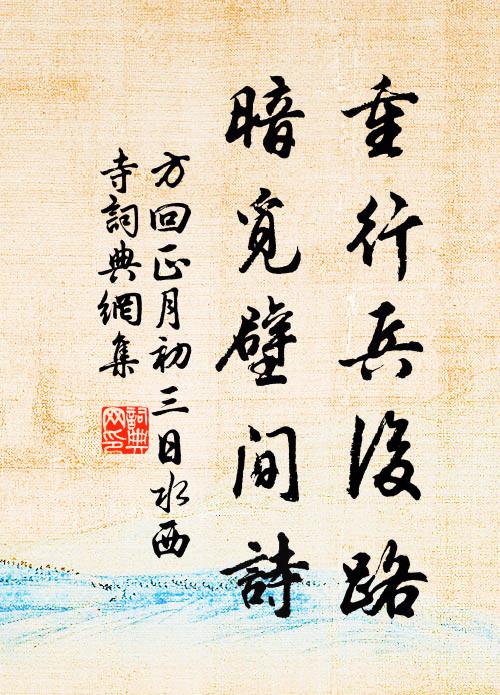 重行兵後路
暗覓壁間詩
方回正月初三日水西
寺詞典網集
詞典
网印